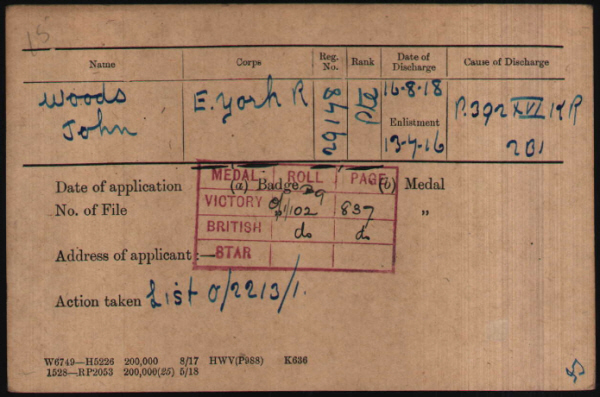 15
Name Corps Reg. No. Rank Date of Discharge Cause of Discharge
Woods E. York R 29178 Pte 16-8-18 P. 392 XVI KR
John Enlistment 13-7-16 201
MEDAL ROLL PAGE
Date of application (a) Badge (b) Medal
VICTORY 837
No. of File "
BRITISH do do
Address of applicant:—
STAR
Action taken List O/2213/1.
W6749—H5226 200,000 8/17 HWV(P988) K636
1528—RP2053 200,000(25) 5/18